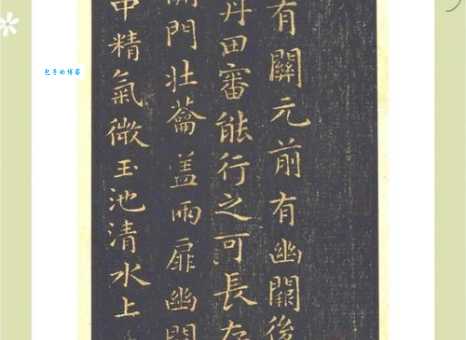 有關元前有幽闕後
丹田審能行之可長存
門壯蘥盖兩扉幽關
中精氣微玉池清水上
的博客